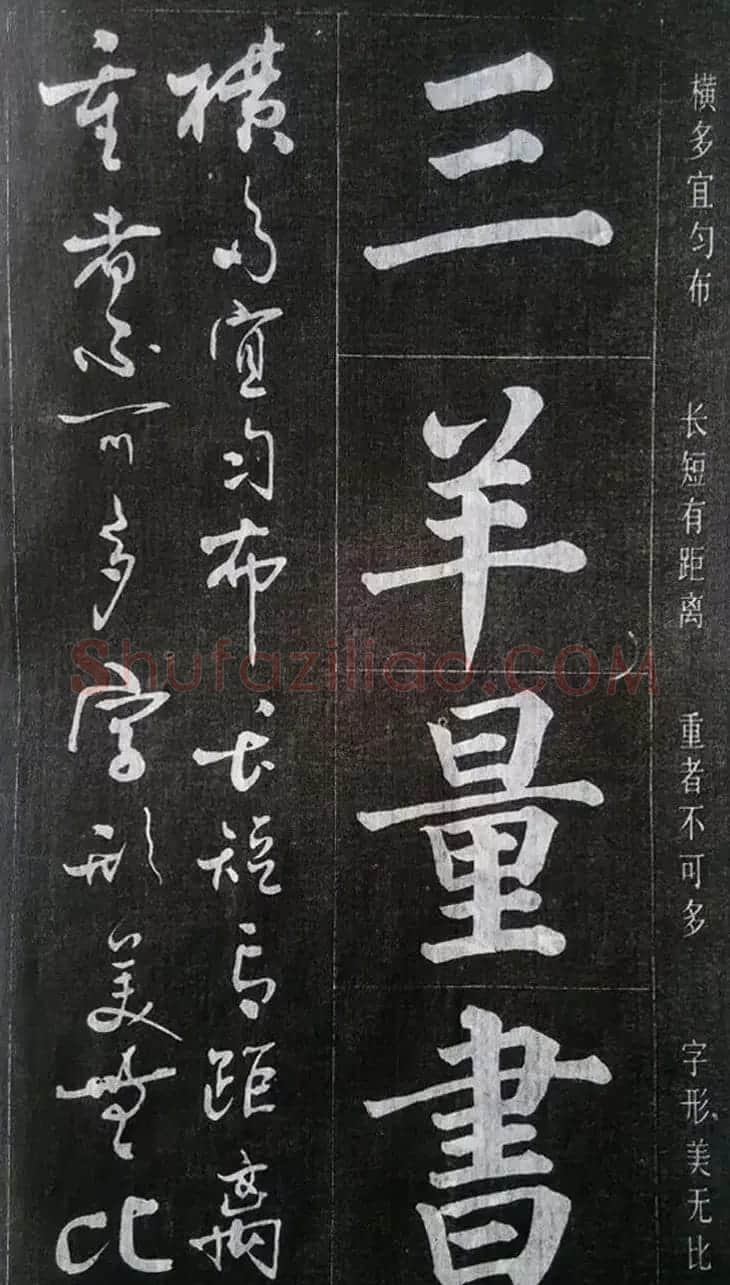 横多宜匀布 长短有距离 重者不可多 字形美无比
三羊量書
横多宜匀布长短有距离
重者不可多字形美無比
Shufaziliao.COM